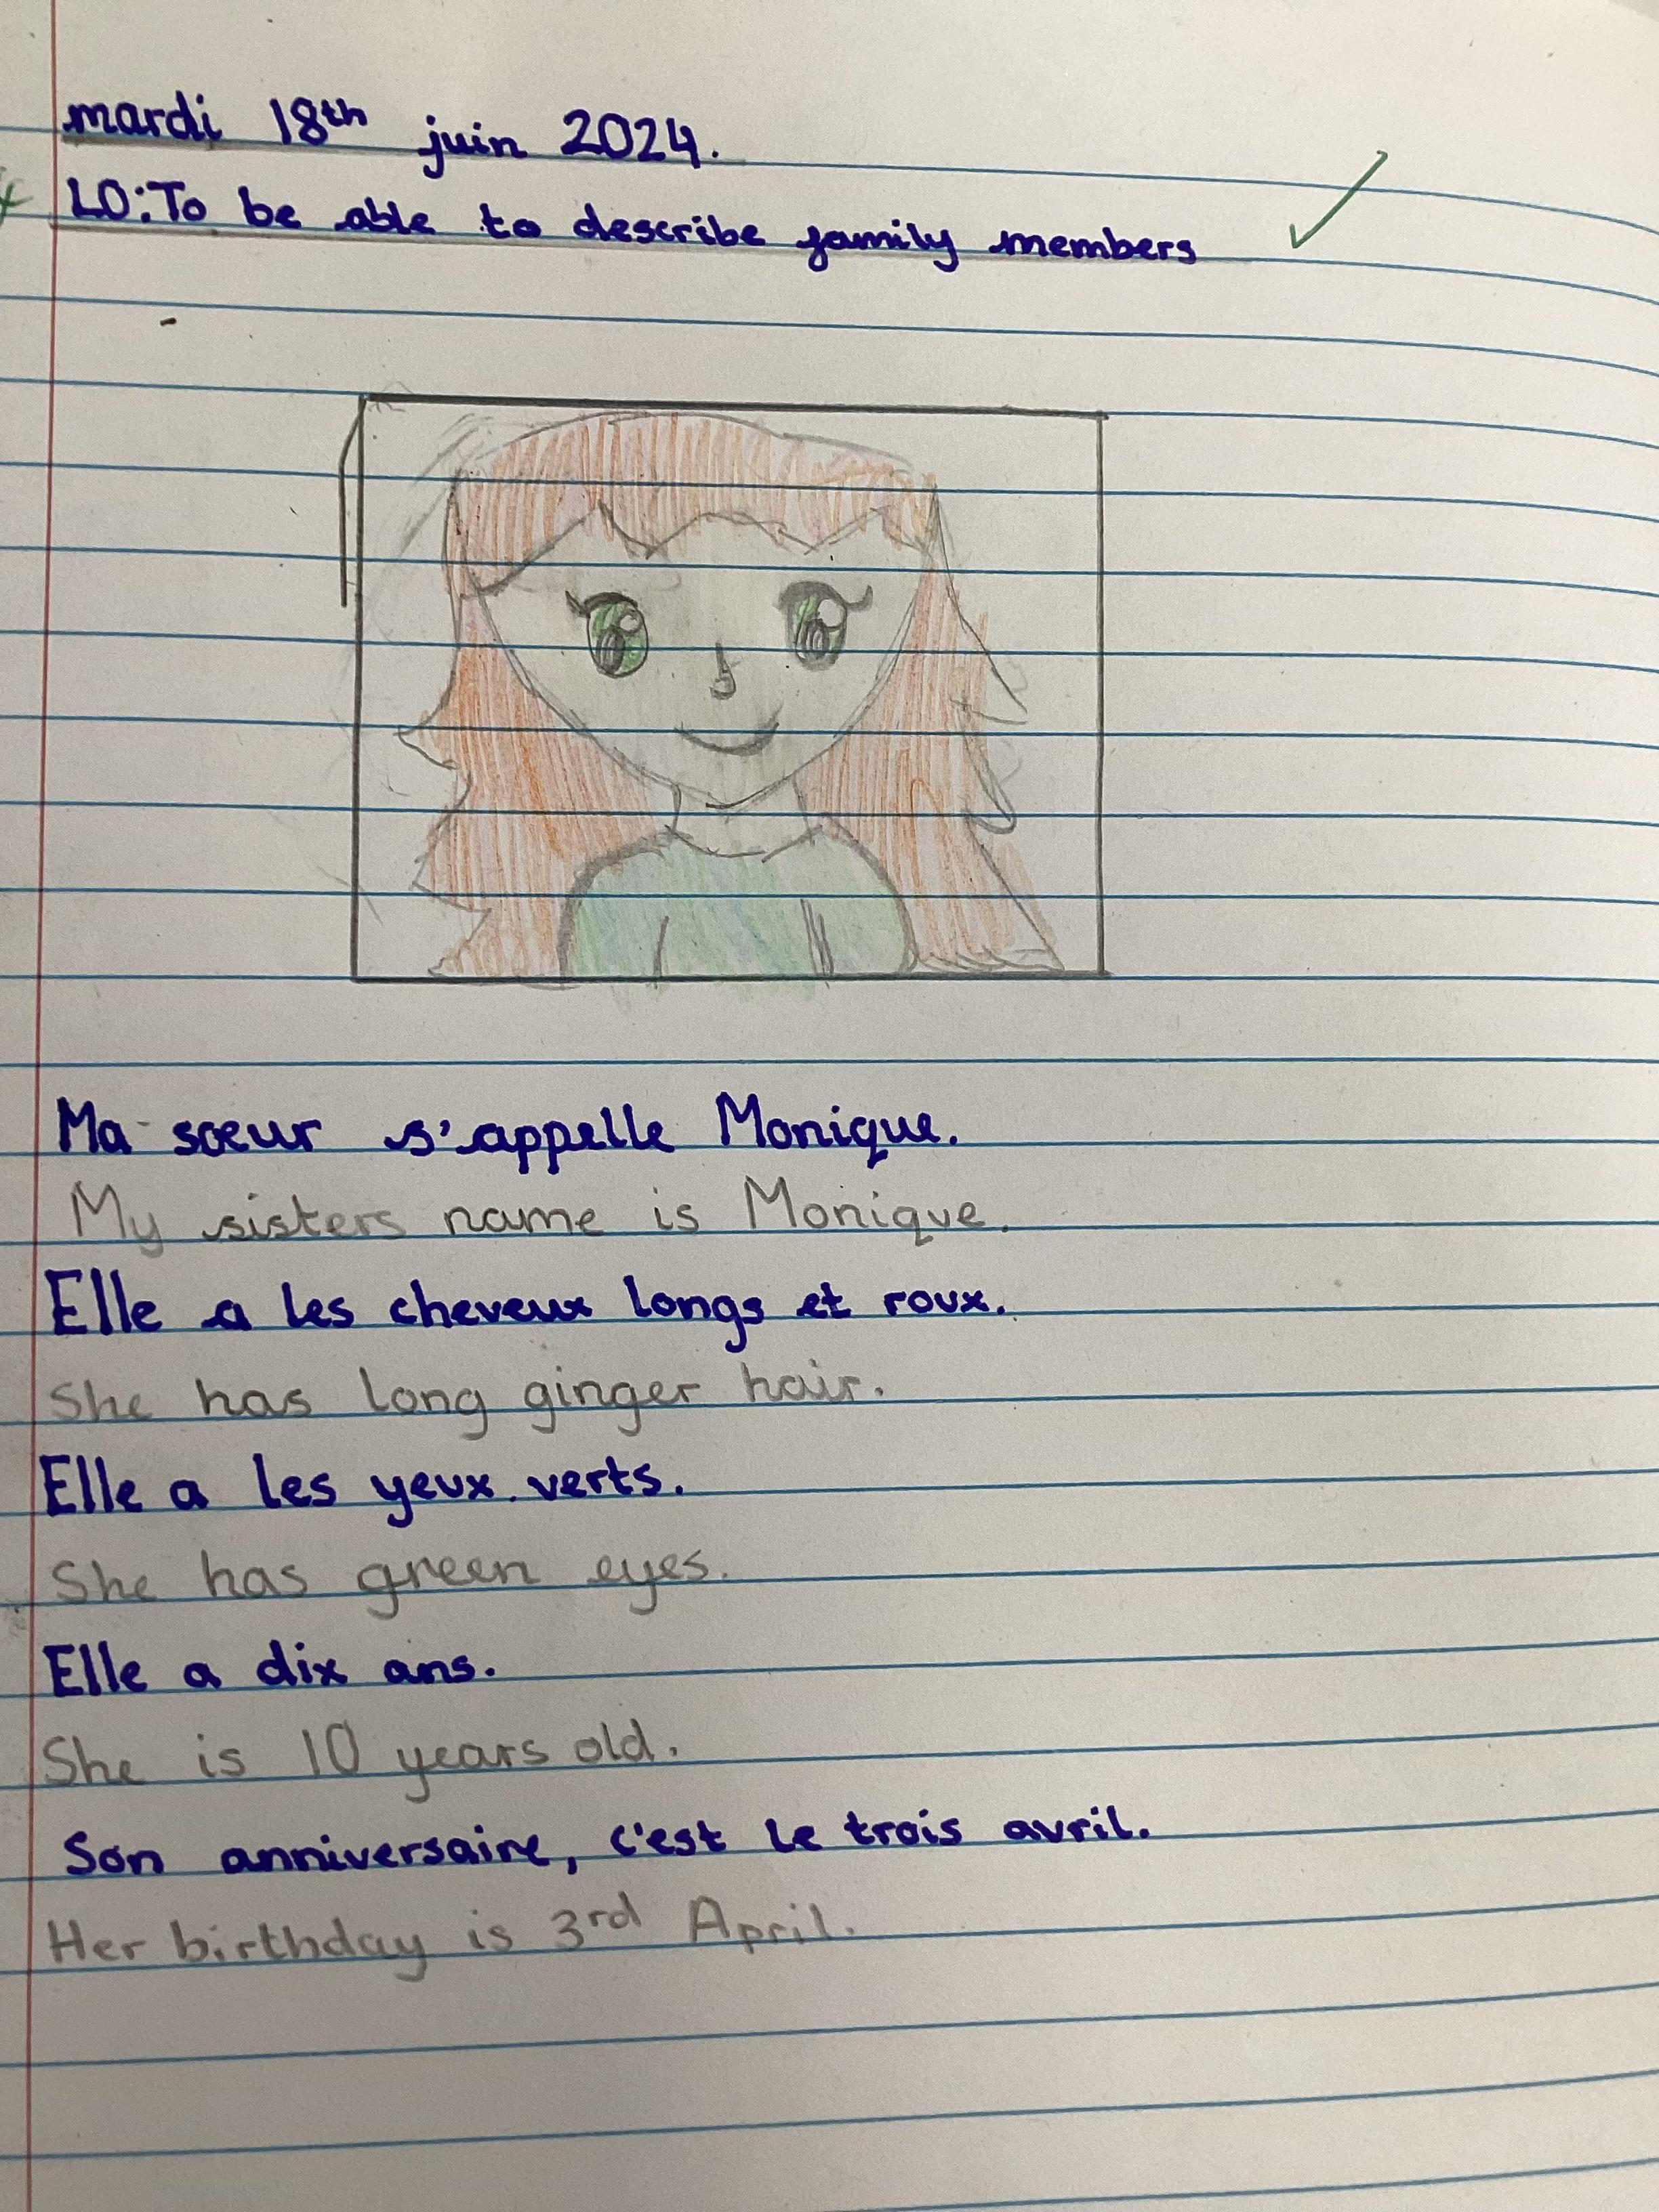 mardi 18th juin 2024.
LO: To be able to describe family members
Ma sœur s'appelle Monique.
My sisters name is Monique.
Elle a les cheveux longs et roux.
She has long ginger hair.
Elle a les yeux verts.
She has green eyes.
Elle a dix ans.
She is 10 years old.
Son anniversaire, c'est le trois avril.
Her birthday is 3rd April.